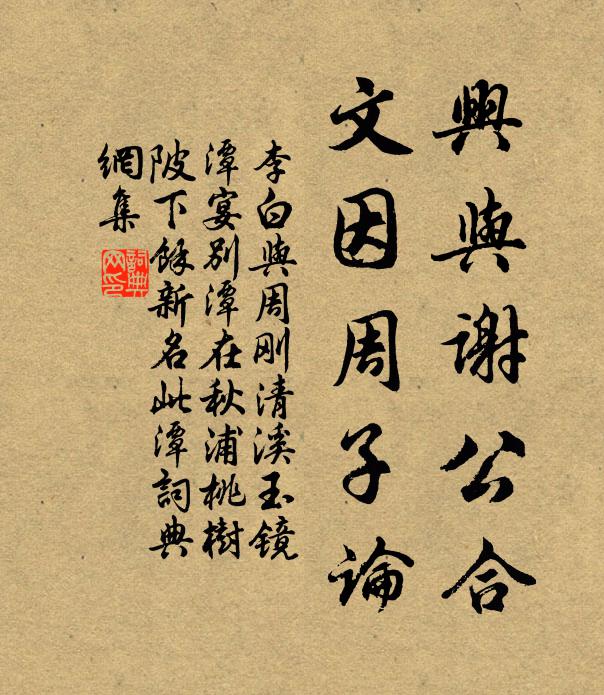 興與謝公合
文因周子論
李白與周刚清溪玉镜
潭宴别潭在秋浦桃樹
陂下餘新名此潭詞典
網集
詞典網印